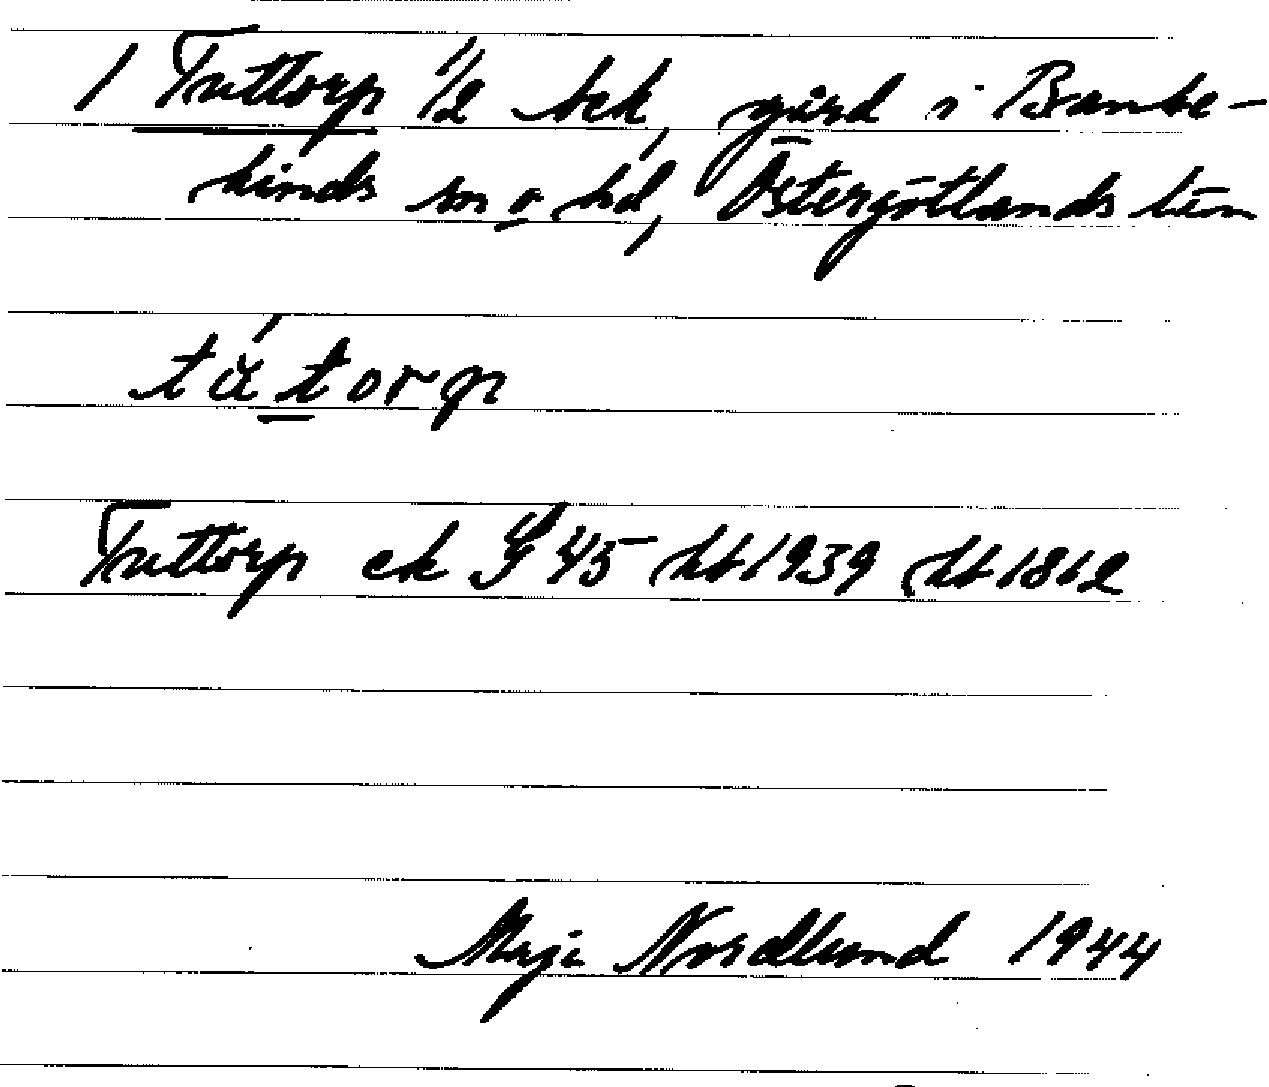 1 Tuttorp 1/2 bck, gård i Banke-
kinds sn o hd, Östergötlands län
tátorp
Tuttorp ek S 45 Hb 1939 Hb 1862
Maja Nordlund 1944